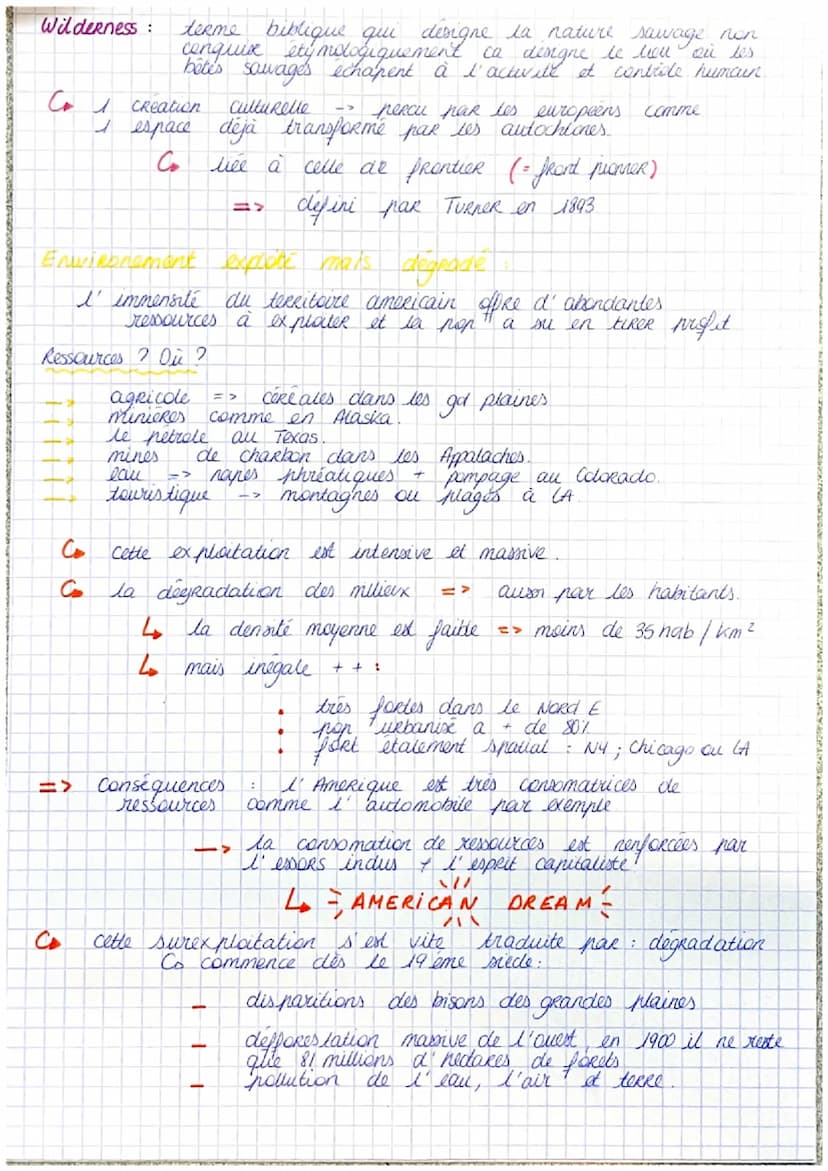 Wilderness : terme biblique qui désigne la nature sauvage non
conquise étymologiquement ca désigne le lieu où les
bêtes sauvages échapent à l'activité et contrôle humain.
1 création culturelle -> percu par les européens comme
1 espace déjà transformé par les autochtones.
liée à celle de frontier (= front pionner)
=> défini par Turner en 1893
Environement exploité mais dégradé :
l'immensité du territoire americain offre d'abondantes
ressources à exploiter et la pop° a su en tirer profit
Ressources ? Où ?
-> agricole => céréales dans les gd plaines
-> minières comme en Alaska.
-> le pétrole au Texas.
-> mines de charbon dans les Appalaches.
-> eau => napes phréatiques + pompage au Colorado.
-> touristique -> montagnes ou plages à LA.
cette exploitation est intensive et massive.
la dégradation des milieux => aussi par les habitants.
la densité moyenne est faible => moins de 35 hab / km²
mais inégale + + :
• très fortes dans le Nord E
• pop° urbanisé a + de 80%
• fort étalement spatial : NY ; Chicago ou LA
=> Conséquences : l'Amerique est très consomatrices de
ressources comme l'automobile par exemple
-> la consomation de ressources est renforcées par
l'essors indus + l'esprit capitaliste
AMERICAN DREAM
cette surexploitation s'est vite traduite par : dégradation
commence dès le 19ème siècle :
- disparitions des bisons des grandes plaines
- défforestation massive de l'ouest, en 1900 il ne reste
que 81 millions d'hectares de forets
- pollution de l'eau, l'air et terre.